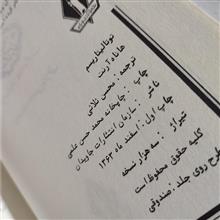 توتالیتاریسم
هانا آرنت
ترجمه : محسن ثلاثی
چاپ : چاپخانه محمد حسن علمی
ناشر : سازمان انتشارات جاویدان
چاپ اول : اسفند ماه ۱۳۶۳
تیراژ : سه هزار نسخه
کلیه حقوق محفوظ است
طرح روی جلد : صندوقی